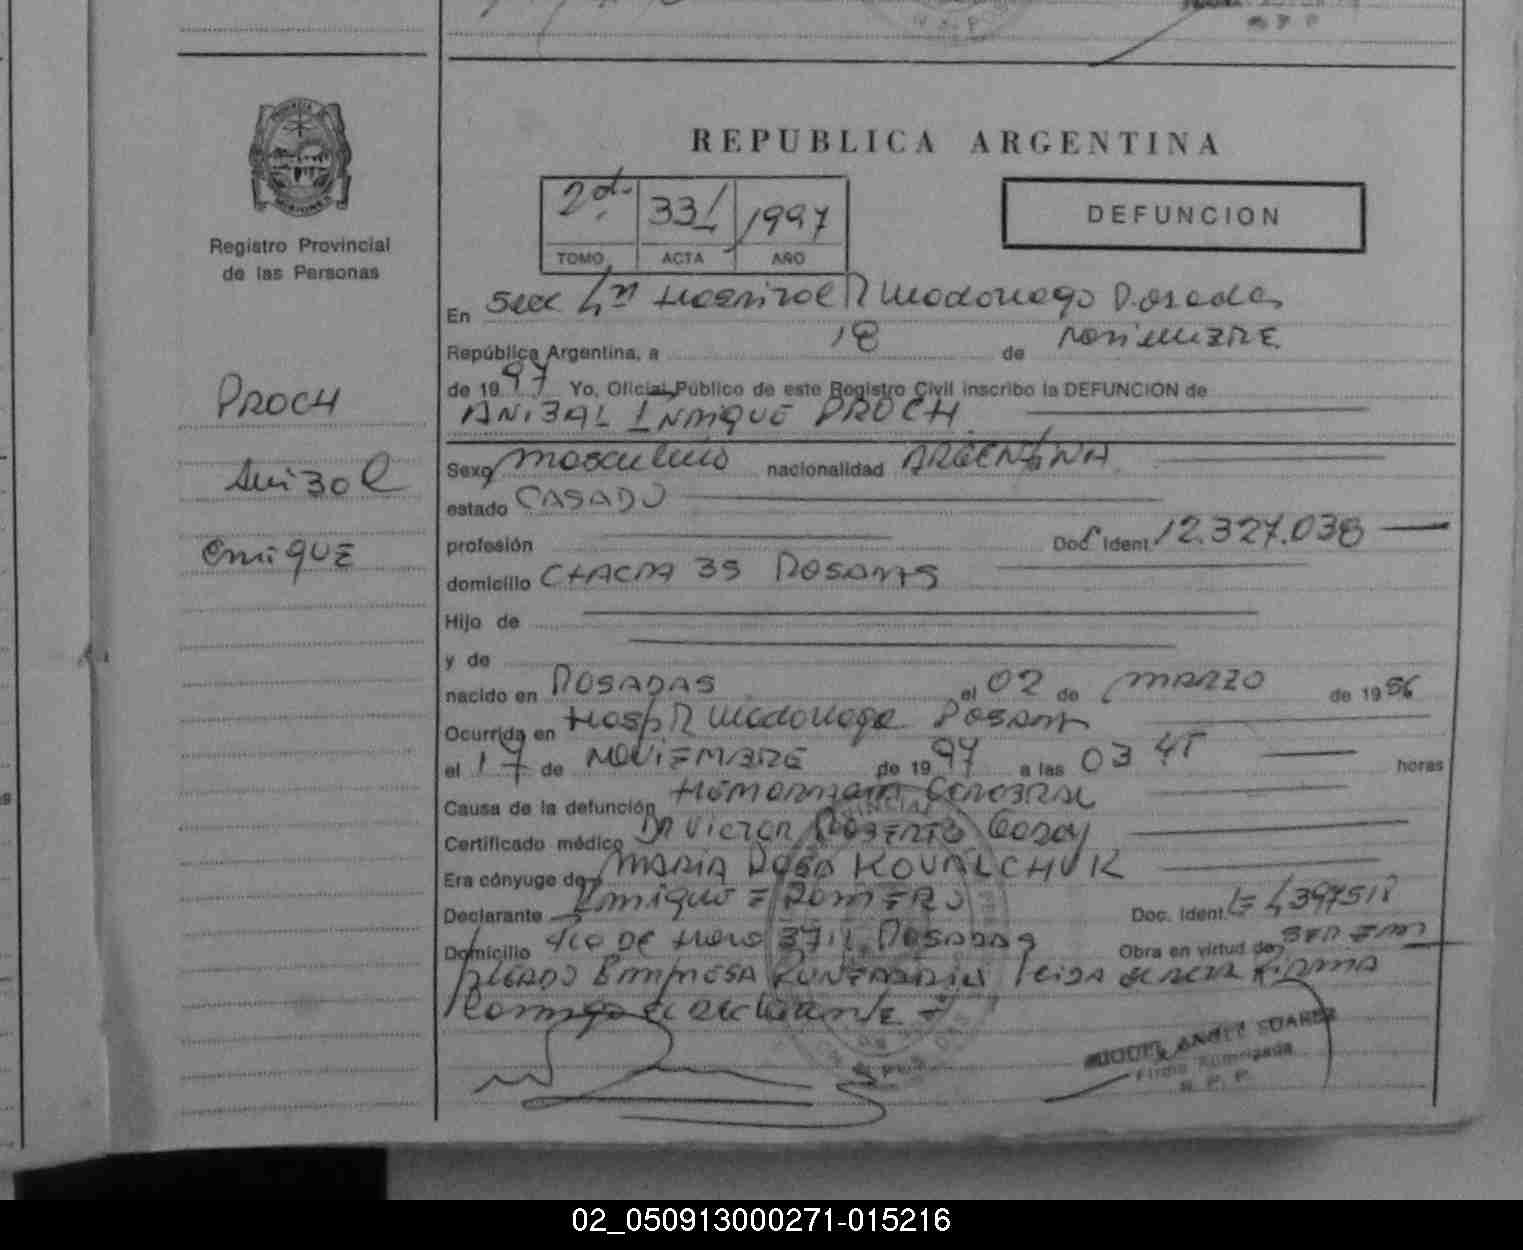 REPUBLICA ARGENTINA
Registro Provincial
de las Personas
2do. 331 1997
TOMO ACTA AÑO
DEFUNCION
En Secc Hospital R Madariaga Posadas
República Argentina, a 18 de NOVIEMBRE
de 1997 Yo, Oficial Público de este Registro Civil inscribo la DEFUNCION de
ANIBAL ENRIQUE PROCH
PROCH
Anibal
Enrique
Sexo masculino nacionalidad ARGENTINA
estado CASADO
profesión Doc. Ident. 12.327.038
domicilio CHACRA 39 POSADAS
Hijo de
y de
nacido en POSADAS el 02 de MARZO de 1956
Ocurrida en Hosp R Madariaga Posadas
el 17 de NOVIEMBRE de 1997 a las 03 45 horas
Causa de la defunción Hemorragia Cerebral
Certificado médico Dr VICTOR ROBERTO
Era cónyuge de MARIA ROSA KOVALCHUK
Declarante Enrique ROMERO Doc. Ident.
Domicilio DE POSADAS Obra en virtud de SER EM
PLEADO EMPRESA FUNERARIA leida el acta FIRMA
Conmigo el declarante
MIGUEL ANGEL SUAREZ
Firma Autorizada
R. P. P.
02_050913000271-015216